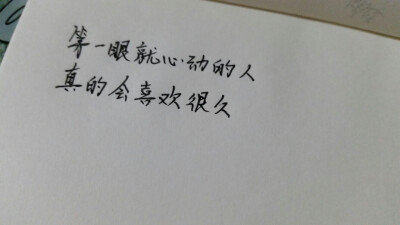 等一眼就心动的人
真的会喜欢很久